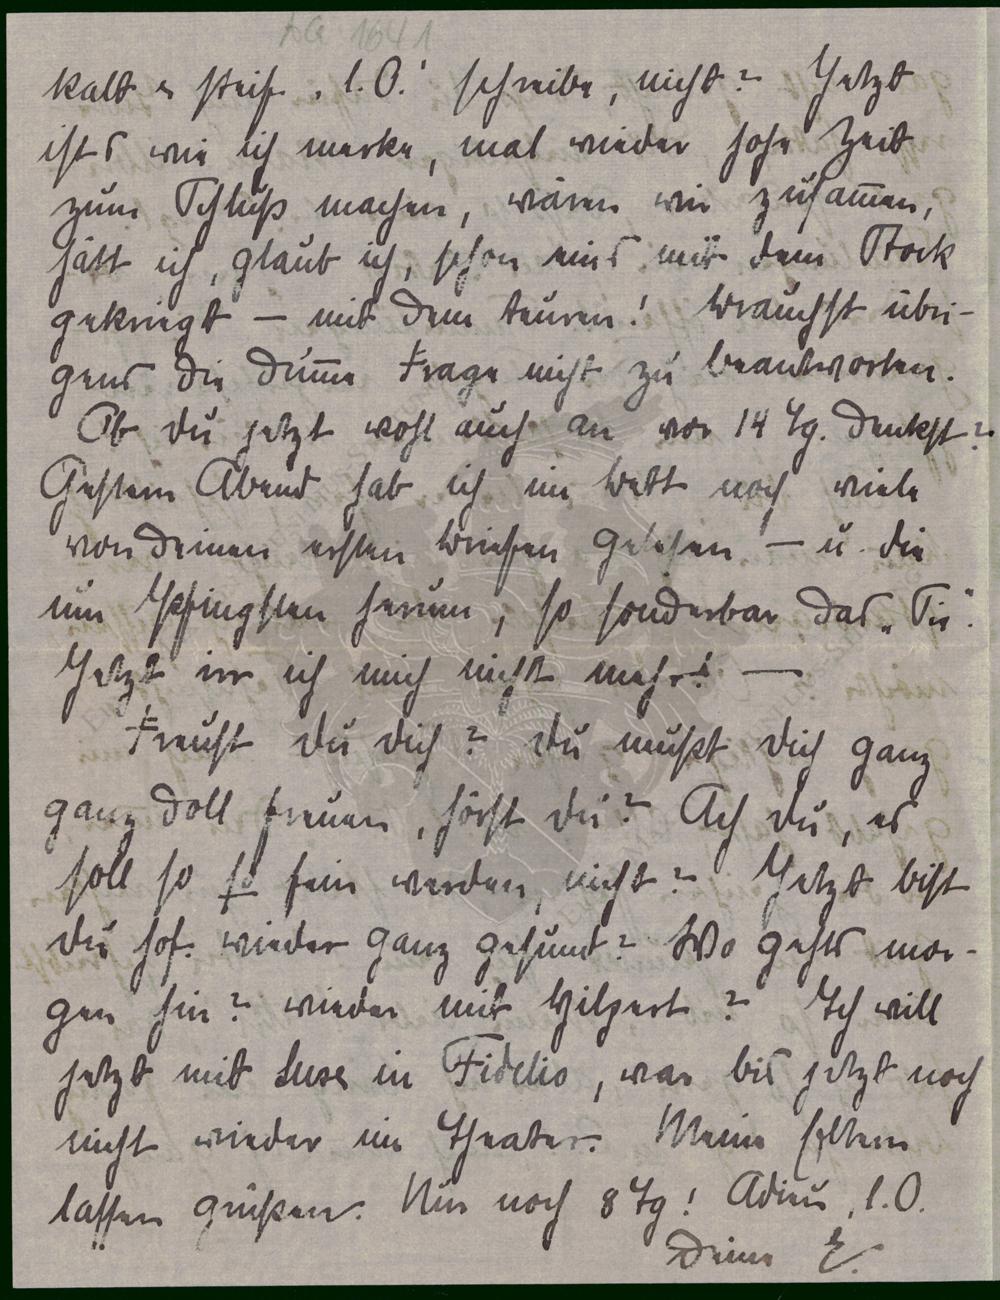 kalt u steif „l.O.“ schreibe, nicht? Jetzt
ists wie ich merke, mal wieder hohe Zeit
zum Schluß machen, wären wir zusam̅en,
hätt ich, glaub ich, schon eins mit dem Stock
gekriegt – mit dem teuren! Brauchst übri-
gens die dum̅e Frage nicht zu beantworten.
Ob du jetzt wohl auch an vor 14 Tg. denkst?
Gestern Abend hab ich im Bett noch viele
von deinen ersten Briefen gelesen – u. die
um Pfingsten herum, so sonderbar das „Sie“.
Jetzt irr ich mich nicht mehr! —
Freust du dich? du mußt dich ganz
ganz doll freuen, hörst du? Ach du, es
soll so so fein werden, nicht? Jetzt bist
du hof. wieder ganz gesund? Wo gehts mor-
gen hin? wieder mit Hilpert? Ich will
jetzt mit Luse in Fidelio, war bis jetzt noch
nicht wieder im Theater. Meine Eltern
lassen grüßen. Nur noch 8 Tg! Adieu, l.O.
Deine E.